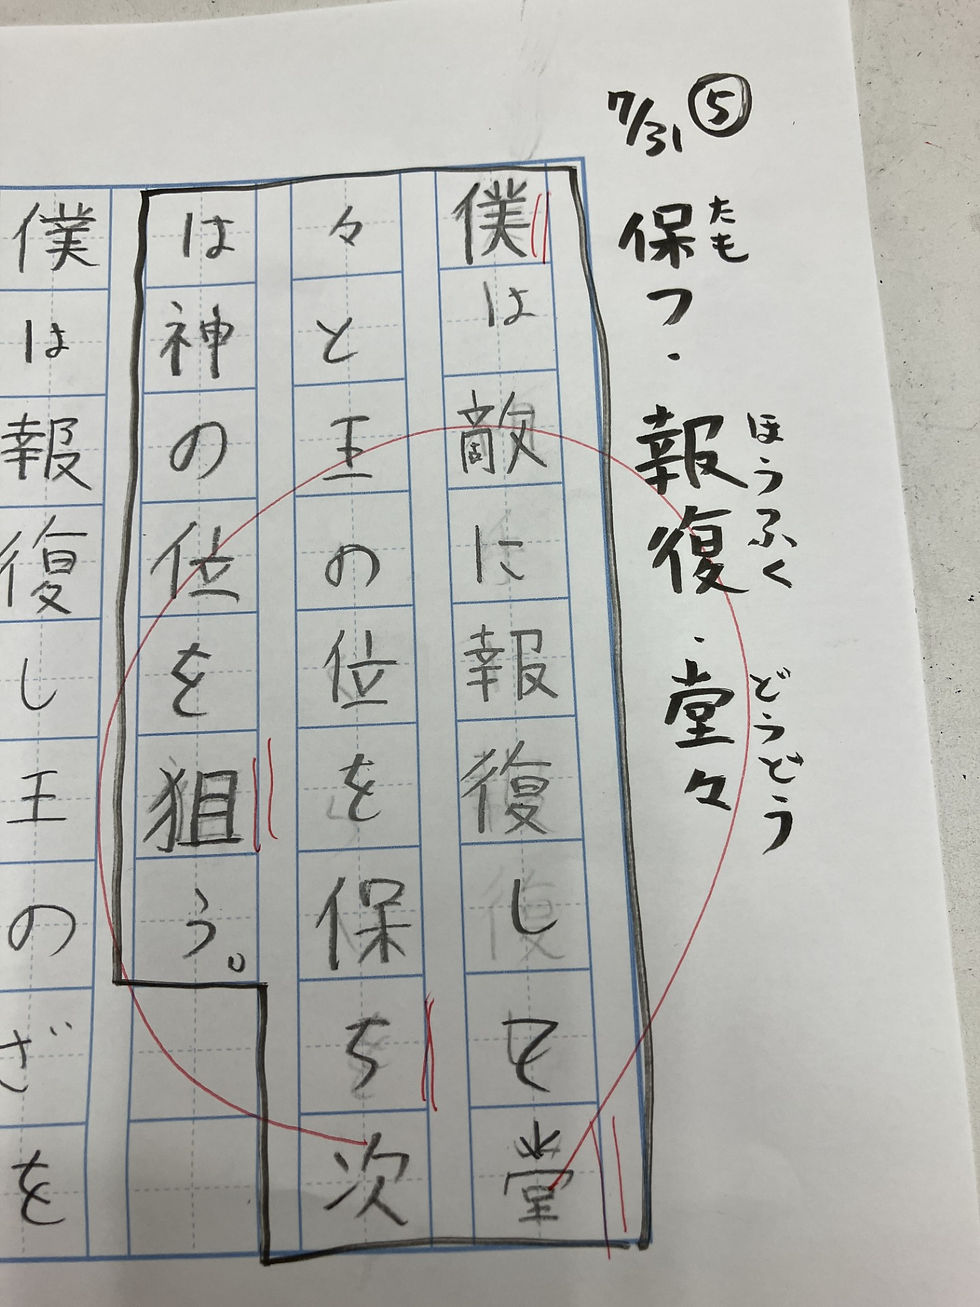 7/31 ⑤
保つ・報復・堂々
たも
ほうふく
どうどう
僕は敵に報復して堂
々と王の位を保ち次
は神の位を狙う。
僕は報復し王のざを